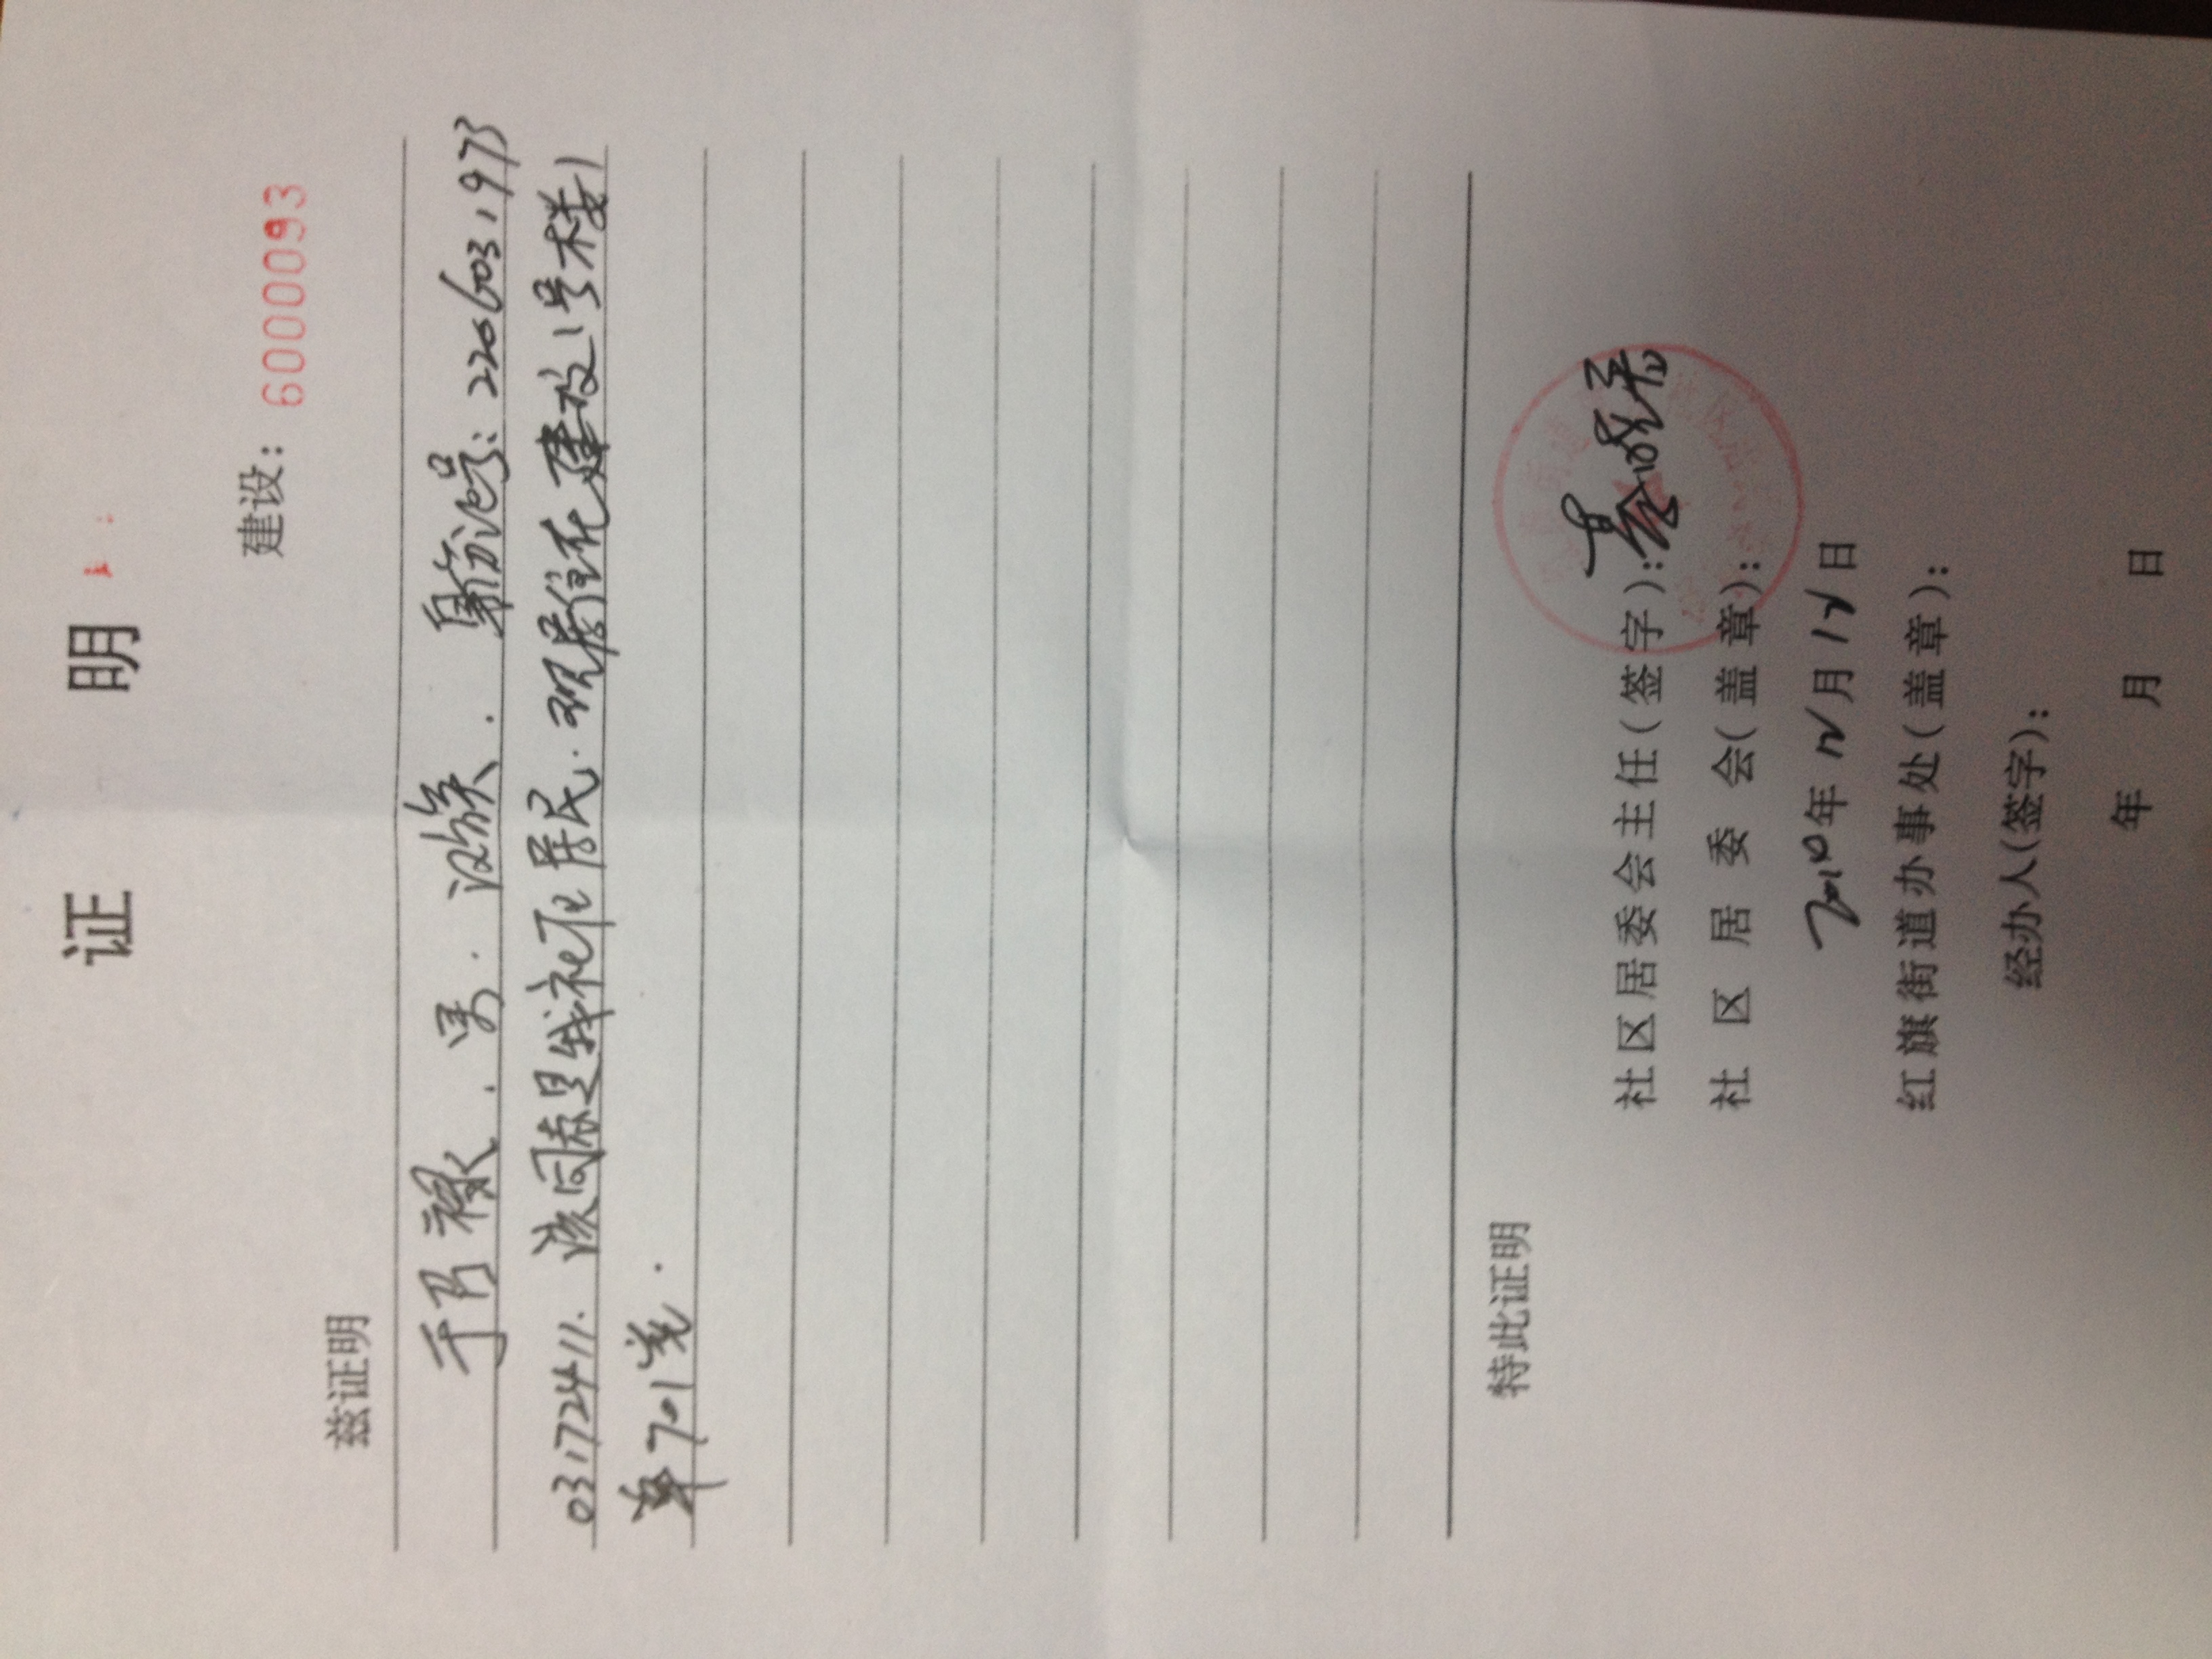 证 明
建设：6000093
兹证明
于乃禄．男．汉族．身份证号：220603197303172411．
该同志是我社区居民．现居住在建设1号楼1
单701室．
特此证明
社区居委会主任（签字）：
社区居委会（盖章）：
2010年12月12日
红旗街道办事处（盖章）：
经办人（签字）：
年 月 日